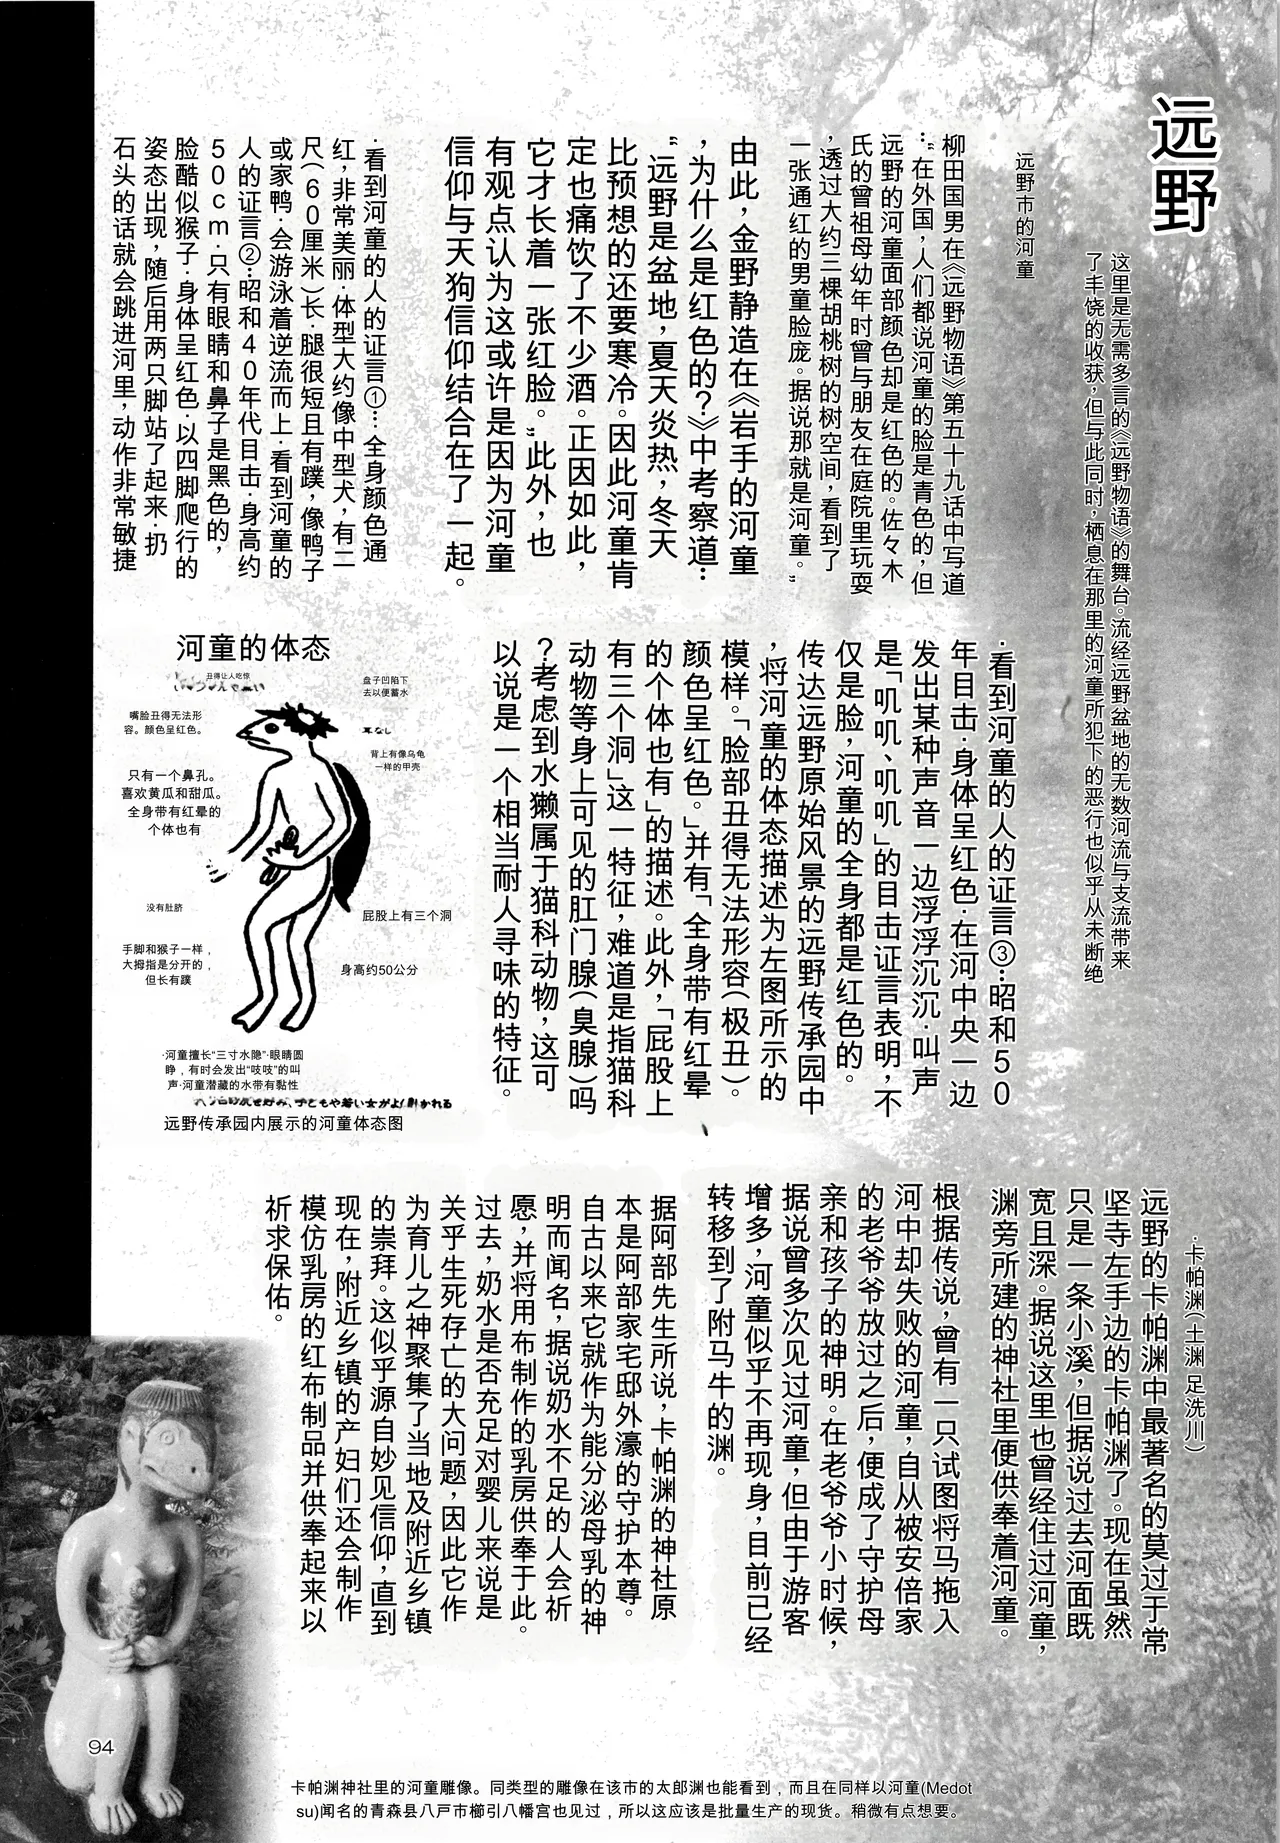 远野
这里是无需多言的《远野物语》的舞台。流经远野盆地的无数河流与支流带来
了丰饶的收获，但与此同时，栖息在那里的河童所犯下的恶行也似乎从未断绝
远野市的河童
柳田国男在《远野物语》第五十九话中写道
：“在外国，人们都说河童的脸是青色的，但
远野的河童面部颜色却是红色的。佐々木
氏的曾祖母幼年时曾与朋友在庭院里玩耍
，透过大约三棵胡桃树的树空间，看到了
一张通红的男童脸庞。据说那就是河童。”
由此，金野静造在《岩手的河童
，为什么是红色的？》中考察道：
“远野是盆地，夏天炎热，冬天
比预想的还要寒冷。因此河童肯
定也痛饮了不少酒。正因如此，
它才长着一张红脸。”此外，也
有观点认为这或许是因为河童
信仰与天狗信仰结合在了一起。
·看到河童的人的证言①…全身颜色通
红，非常美丽·体型大约像中型犬，有二
尺（60厘米）长·腿很短且有蹼，像鸭子
或家鸭·会游泳着逆流而上·看到河童的
人的证言②…昭和40年代目击·身高约
50cm·只有眼睛和鼻子是黑色的，
脸酷似猴子·身体呈红色·以四脚爬行的
姿态出现，随后用两只脚站了起来·扔
石头的话就会跳进河里，动作非常敏捷
·看到河童的人的证言③…昭和50
年目击·身体呈红色·在河中央一边
发出某种声音一边浮浮沉沉·叫声
是「叽叽、叽叽」的目击证言表明，不
仅是脸，河童的全身都是红色的。
传达远野原始风景的远野传承园中
，将河童的体态描述为左图所示的
模样。「脸部丑得无法形容（极丑）。
颜色呈红色。」并有「全身带有红晕
的个体也有」的描述。此外，「屁股上
有三个洞」这一特征，难道是指猫科
动物等身上可见的肛门腺（臭腺）吗
？考虑到水獭属于猫科动物，这可
以说是一个相当耐人寻味的特征。
河童的体态
丑得让人吃惊
盘子凹陷下
去以便蓄水
嘴脸丑得无法形
容。颜色呈红色。
耳なし
背上有像乌龟
一样的甲壳
只有一个鼻孔。
喜欢黄瓜和甜瓜。
全身带有红晕的
个体也有
没有肚脐
屁股上有三个洞
手脚和猴子一样，
大拇指是分开的，
但长有蹼
身高约50公分
·河童擅长“三寸水隐”·眼睛圆
睁，有时会发出“吱吱”的叫
声·河童潜藏的水带有黏性
子どもや若い女がよく引かれる
远野传承园内展示的河童体态图
·卡帕渊（土渊 足洗川）
远野的卡帕渊中最著名的莫过于常
坚寺左手边的卡帕渊了。现在虽然
只是一条小溪，但据说过去河面既
宽且深。据说这里也曾经住过河童，
渊旁所建的神社里便供奉着河童。
根据传说，曾有一只试图将马拖入
河中却失败的河童，自从被安倍家
的老爷爷放过之后，便成了守护母
亲和孩子的神明。在老爷爷小时候，
据说曾多次见过河童，但由于游客
增多，河童似乎不再现身，目前已经
转移到了附马牛的渊。
据阿部先生所说，卡帕渊的神社原
本是阿部家宅邸外濠的守护本尊。
自古以来它就作为能分泌母乳的神
明而闻名，据说奶水不足的人会祈
愿，并将用布制作的乳房供奉于此。
过去，奶水是否充足对婴儿来说是
关乎生死存亡的大问题，因此它作
为育儿之神聚集了当地及附近乡镇
的崇拜。这似乎源自妙见信仰，直到
现在，附近乡镇的产妇们还会制作
模仿乳房的红布制品并供奉起来以
祈求保佑。
94
卡帕渊神社里的河童雕像。同类型的雕像在该市的太郎渊也能看到，而且在同样以河童(Medot
su)闻名的青森县八戸市櫛引八幡宫也见过，所以这应该是批量生产的现货。稍微有点想要。